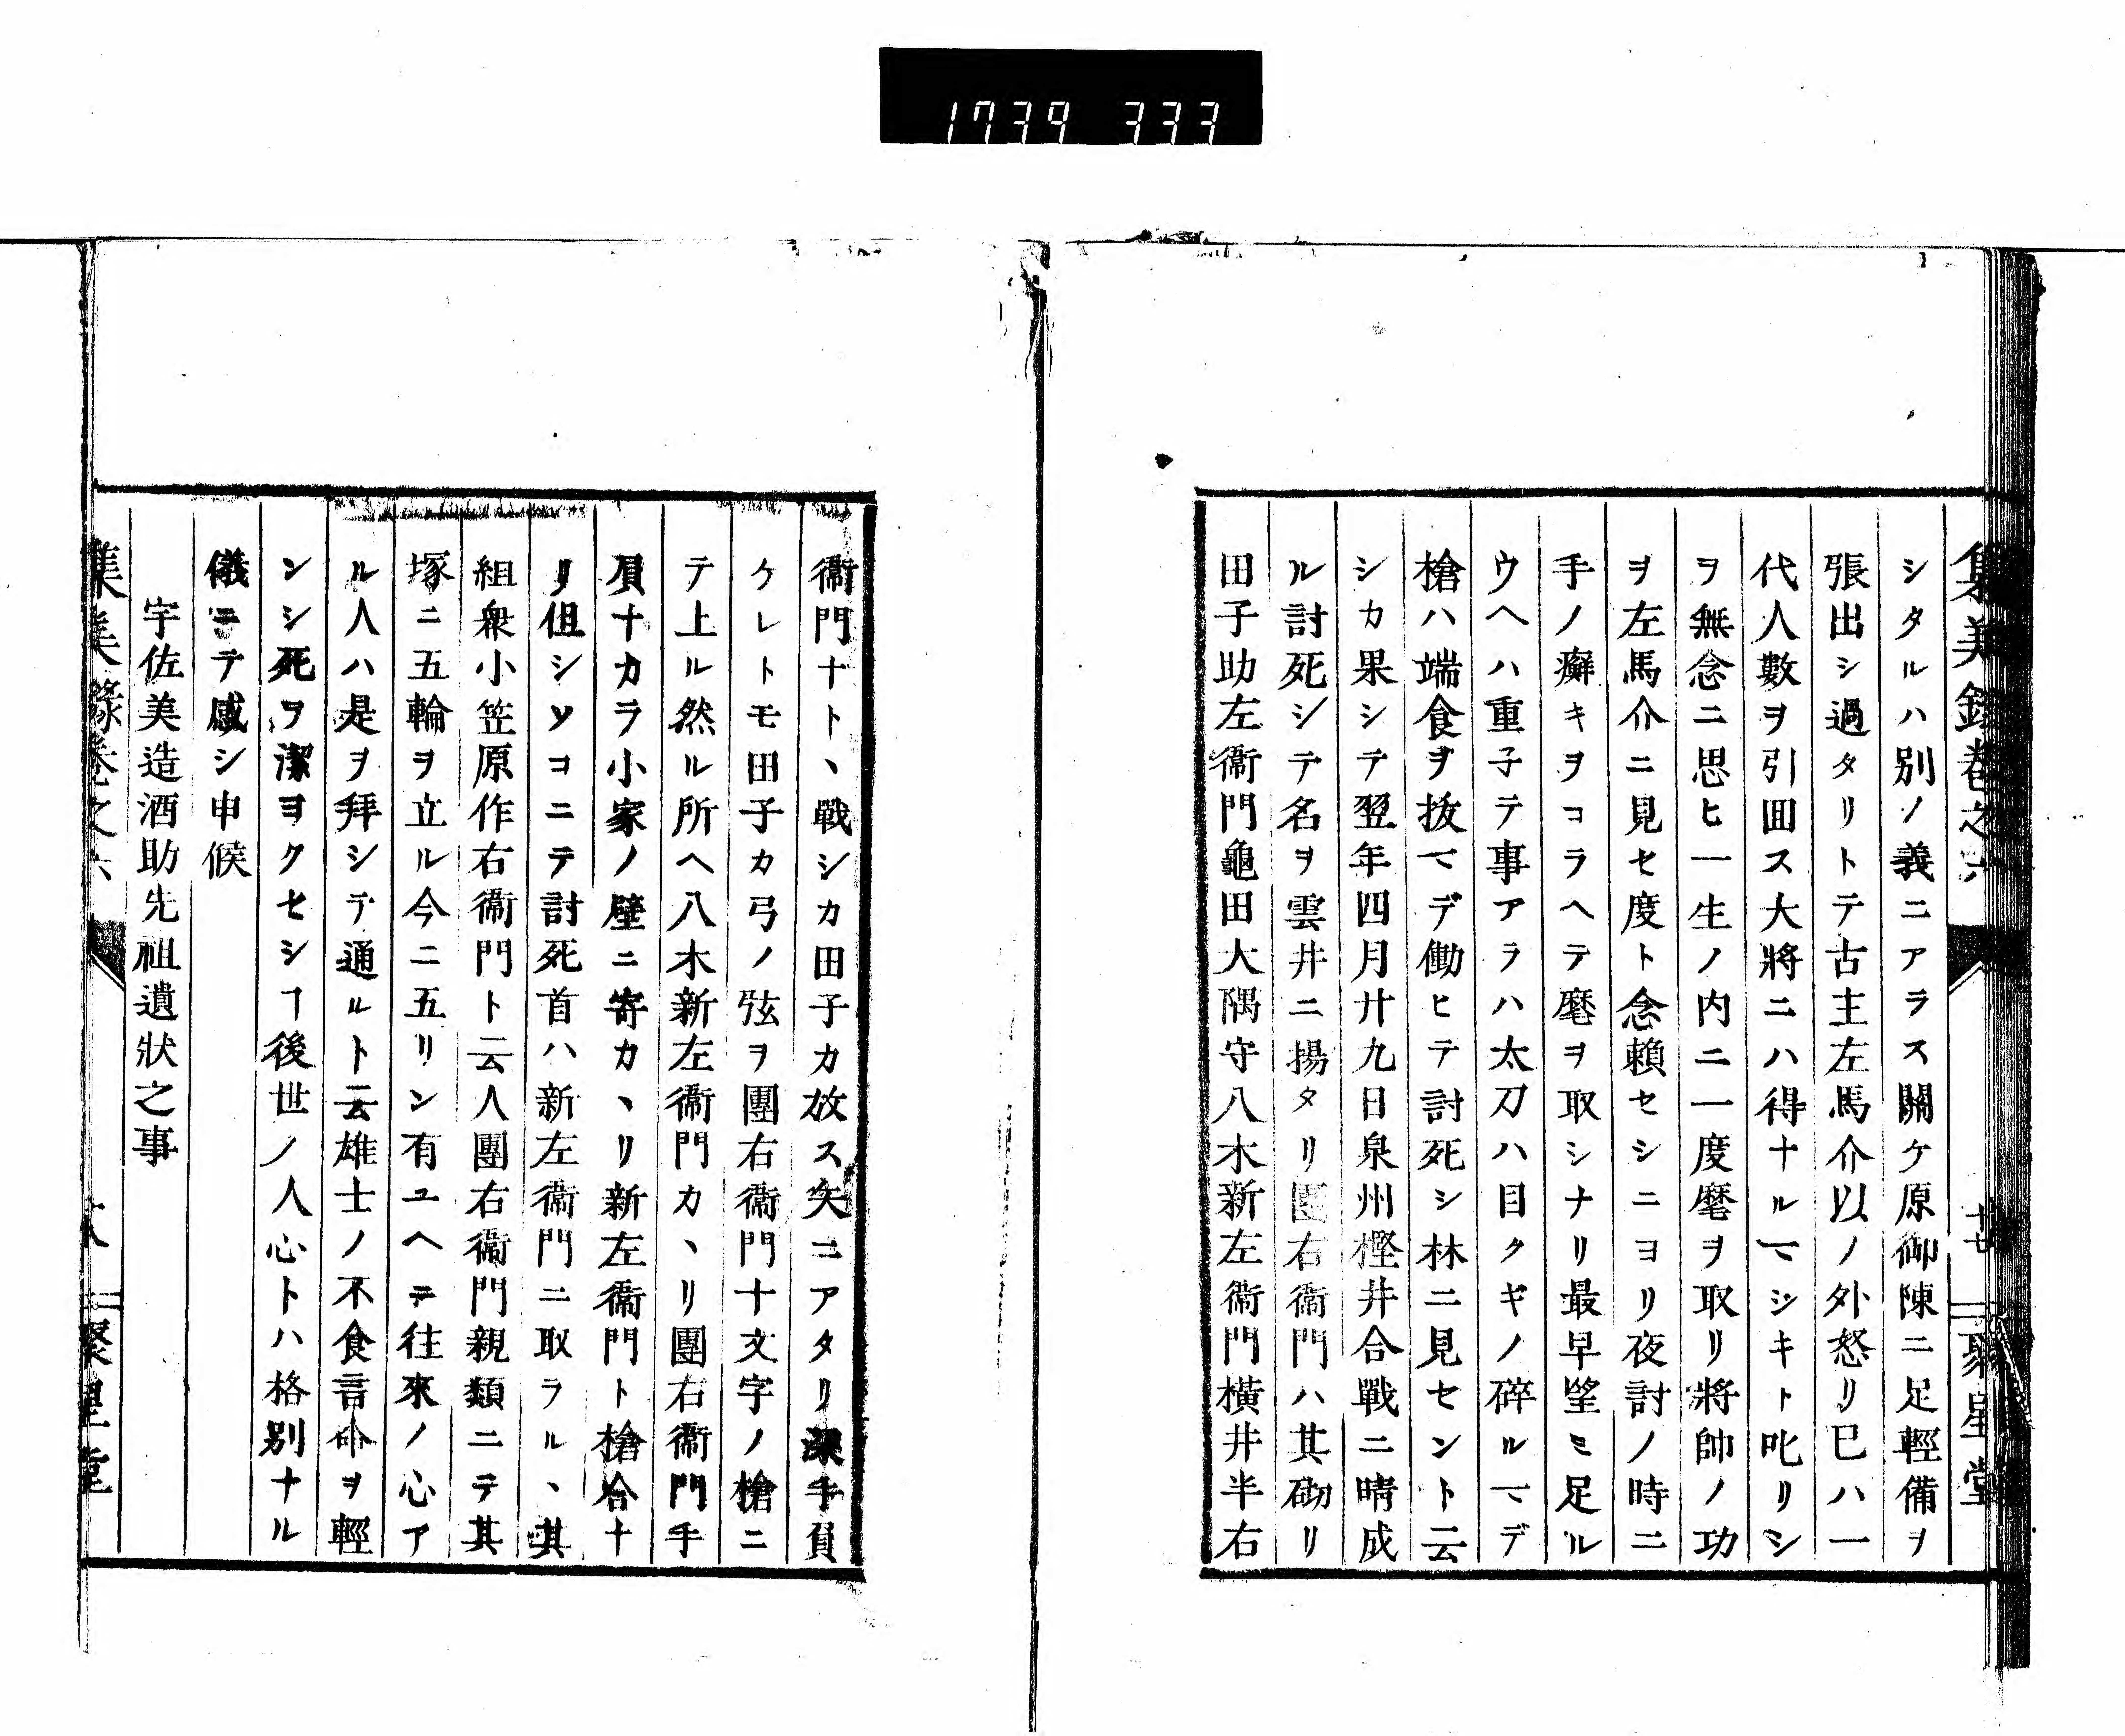 1739 333
集美錄卷之六 廿七 聚星堂
シタルハ別ノ義ニアラス關ケ原御陳ニ足輕備ヲ
張出シ過タリトテ古主左馬介以ノ外怒リ已ハ一
代人數ヲ引囬ス大將ニハ得ナルマシキト叱リシ
ヲ無念ニ思ヒ一生ノ内ニ一度麾ヲ取リ將帥ノ功
ヲ左馬介ニ見セ度ト念賴セシニヨリ夜討ノ時ニ
手ノ癬キヲコラヘテ麾ヲ取シナリ最早望ミ足ル
ウヘハ重子テ事アラハ太刀ハ目クギノ碎ルマデ
槍ハ端食ヲ拔マデ働ヒテ討死シ林ニ見セント云
シカ果シテ翌年四月廿九日泉州樫井合戰ニ晴成
ル討死シテ名ヲ雲井ニ揚タリ團右衞門ハ其砌リ
田子助左衞門龜田大隅守八木新左衞門橫井半右
衞門ナト、戰シカ田子カ放ス矢ニアタリ深手負
ケレトモ田子カ弓ノ弦ヲ團右衞門十文字ノ槍ニ
テ上ル然ル所ヘ八木新左衞門カ、リ團右衞門手
負ナカラ小家ノ壁ニ寄カ、リ新左衞門ト槍合ナ
リ但シソコニテ討死首ハ新左衞門ニ取ラル、其
組衆小笠原作右衞門ト云人團右衞門親類ニテ其
塚ニ五輪ヲ立ル今ニ五リン有ユヘテ往來ノ心ア
ル人ハ是ヲ拜シテ通ルト云雄士ノ不食言命ヲ輕
ンシ死ヲ潔ヨクセシヿ後世ノ人心トハ格別ナル
儀ニテ感シ申候
宇佐美造酒助先祖遺狀之事
集美錄卷之六 聚星堂